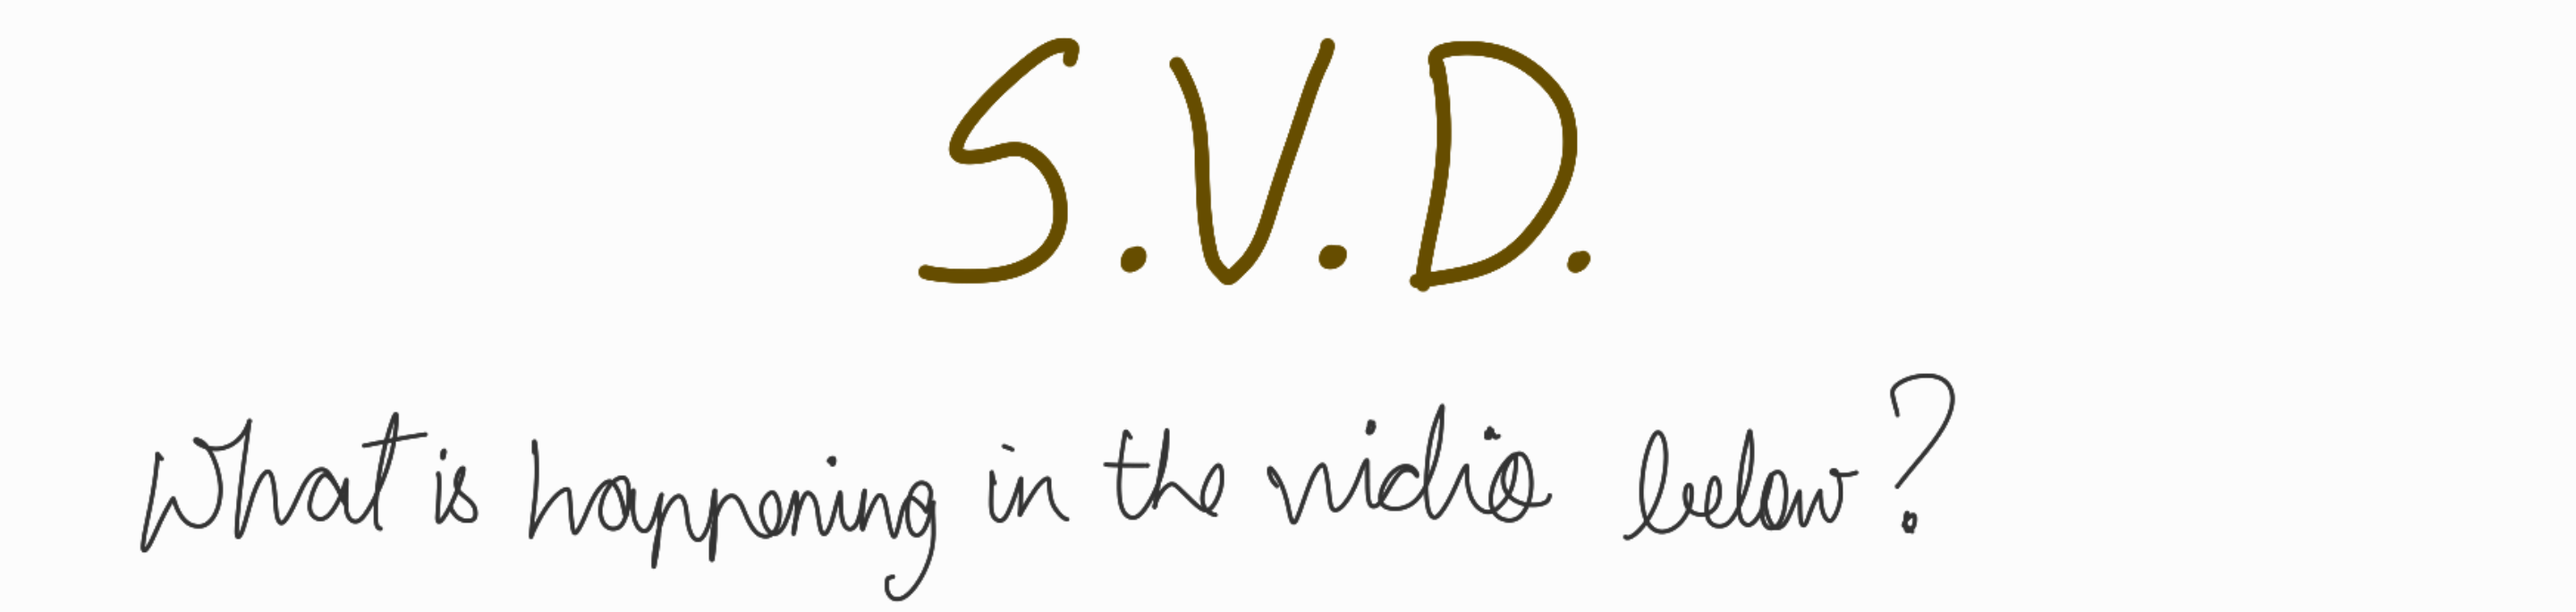 S.V.D.
What is happening in the vidio below?